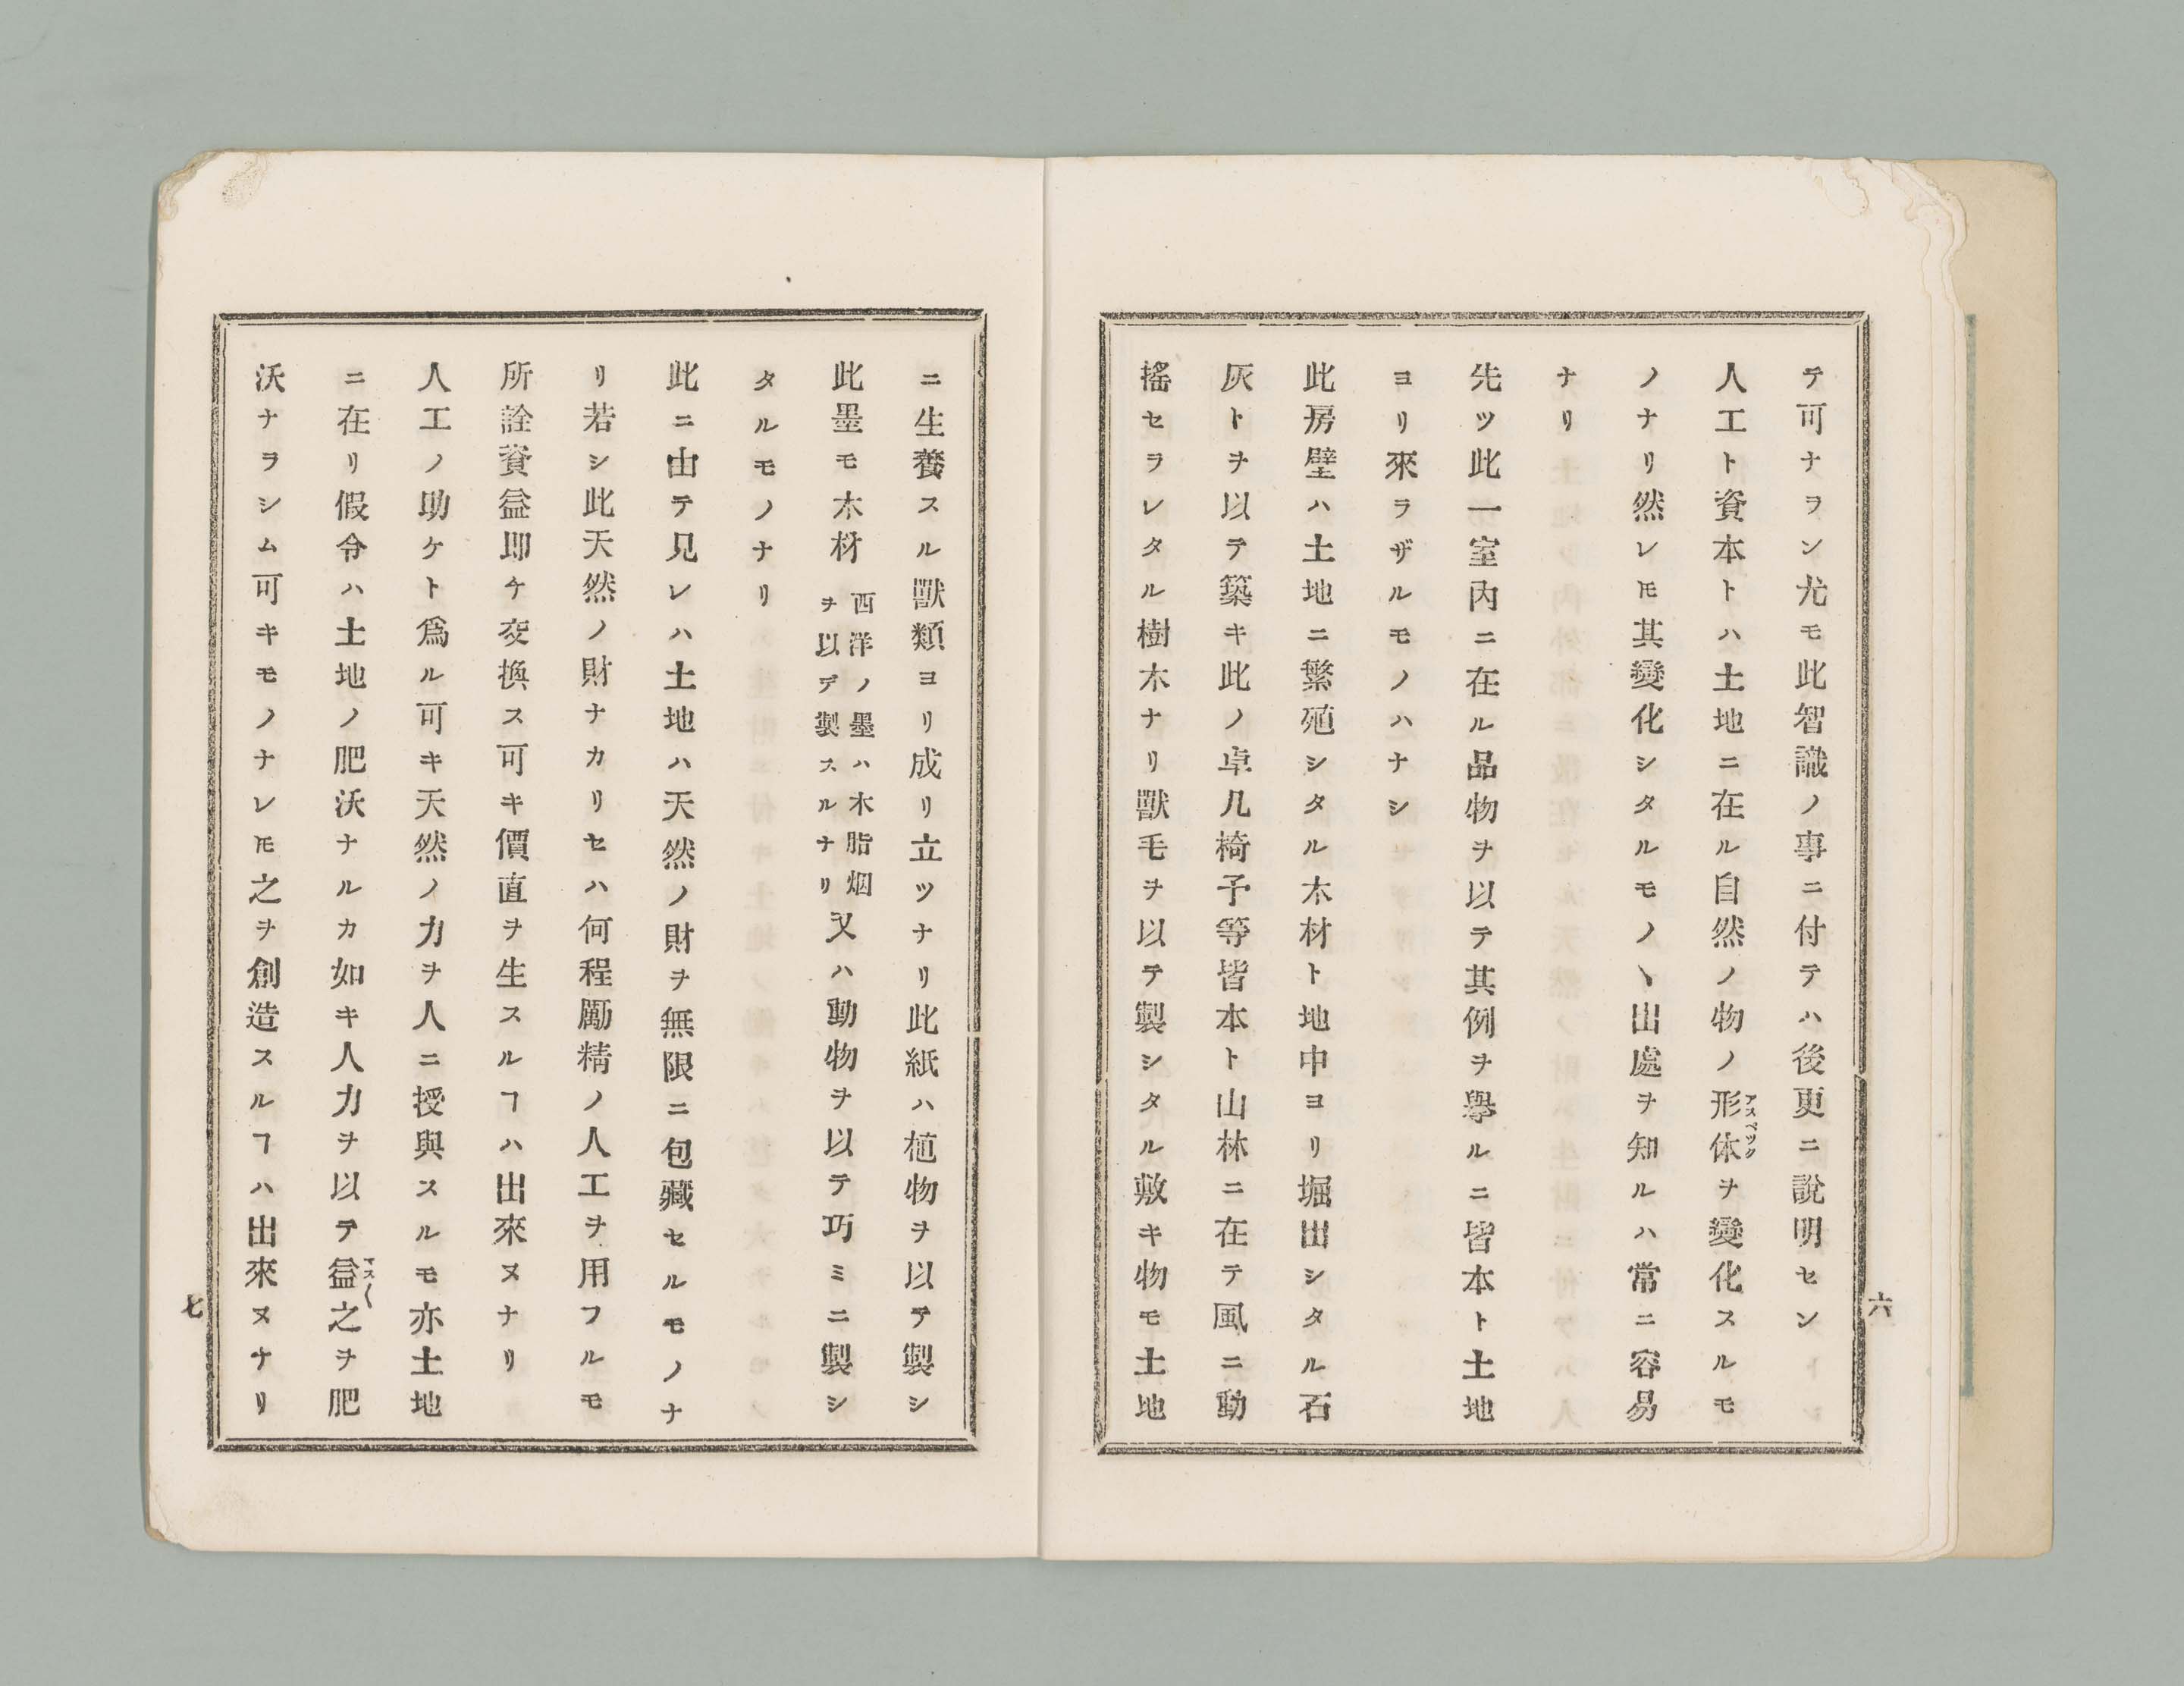 六
テ可ナヲン尤モ此智識ノ事ニ付テハ後更ニ說明セン
人工ト資本トハ土地ニ在ル自然ノ物ノ形体ヲ變化スルモ
アスペック
ノナリ然レ𪜈其變化シタルモノヽ出處ヲ知ルハ常ニ容易
ナリ
先ツ此一室內ニ在ル品物ヲ以テ其例ヲ擧ルニ皆本ト土地
ヨリ來ラザルモノハナシ
此房壁ハ土地ニ繁殖シタル木材ト地中ヨリ堀出シタル石
灰トヲ以テ築キ此ノ卓几椅子等皆本ト山林ニ在テ風ニ動
搖セラレタル樹木ナリ獸毛ヲ以テ製シタル敷キ物モ土地
ニ生養スル獸類ヨリ成リ立ツナリ此紙ハ植物ヲ以テ製シ
此墨モ木材西洋ノ墨ハ木脂烟ヲ以テ製スルナリ又ハ動物ヲ以テ巧ミニ製シ
タルモノナリ
此ニ由テ見レハ土地ハ天然ノ財ヲ無限ニ包藏セルモノナ
リ若シ此天然ノ財ナカリセハ何程勵精ノ人工ヲ用フルモ
所詮資益卽チ交換ス可キ價直ヲ生スルヿハ出來ヌナリ
人工ノ助ケト爲ル可キ天然ノ力ヲ人ニ授與スルモ亦土地
ニ在リ假令ハ土地ノ肥沃ナルカ如キ人力ヲ以テ益之ヲ肥
マス〱
沃ナヲシム可キモノナレ𪜈之ヲ創造スルヿハ出來ヌナリ
七